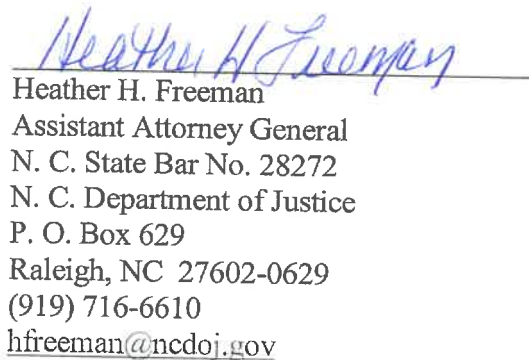 Heather H Freeman
Heather H. Freeman
Assistant Attorney General
N. C. State Bar No. 28272
N. C. Department of Justice
P. O. Box 629
Raleigh, NC 27602-0629
(919) 716-6610
hfreeman@ncdoj.gov